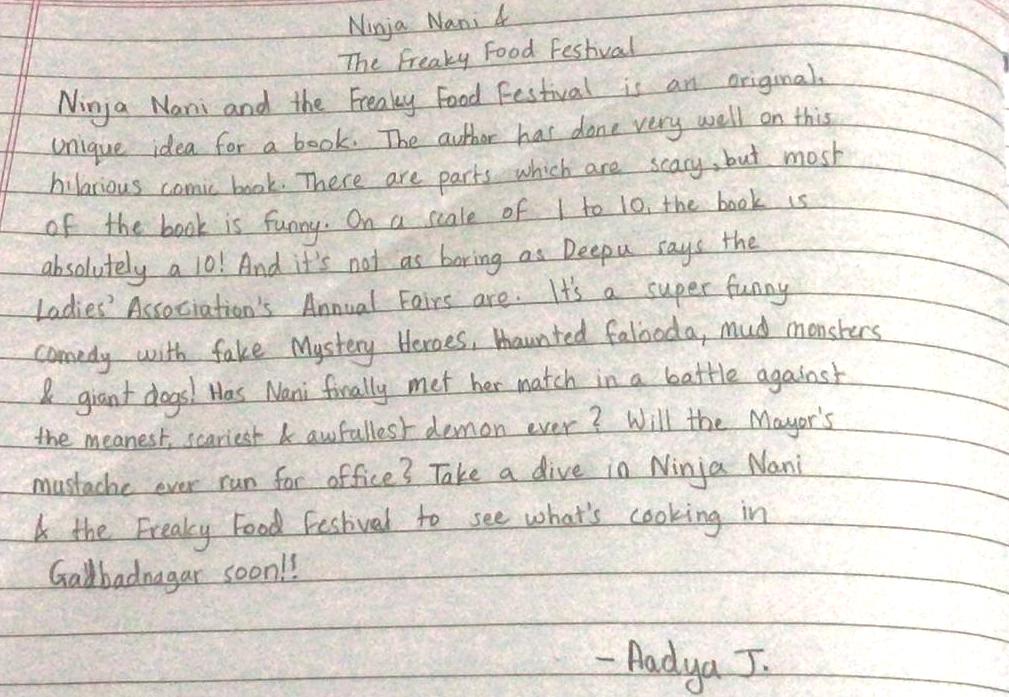 Ninja Nani &
The Freaky Food Festival
Ninja Nani and the Freaky Food Festival is an original,
unique idea for a book. The author has done very well on this
hilarious comic book. There are parts which are scary, but most
of the book is funny. On a scale of 1 to 10, the book is
absolutely a 10! And it's not as boring as Deepu says the
Ladies' Association's Annual Fairs are. It's a super funny
comedy with fake Mystery Heroes, haunted falooda, mud monsters
& giant dogs! Has Nani finally met her match in a battle against
the meanest, scariest & awfullest demon ever? Will the Mayor's
mustache ever run for office? Take a dive in Ninja Nani
& the Freaky Food Festival to see what's cooking in
Gadbadnagar soon!!
- Aadya J.